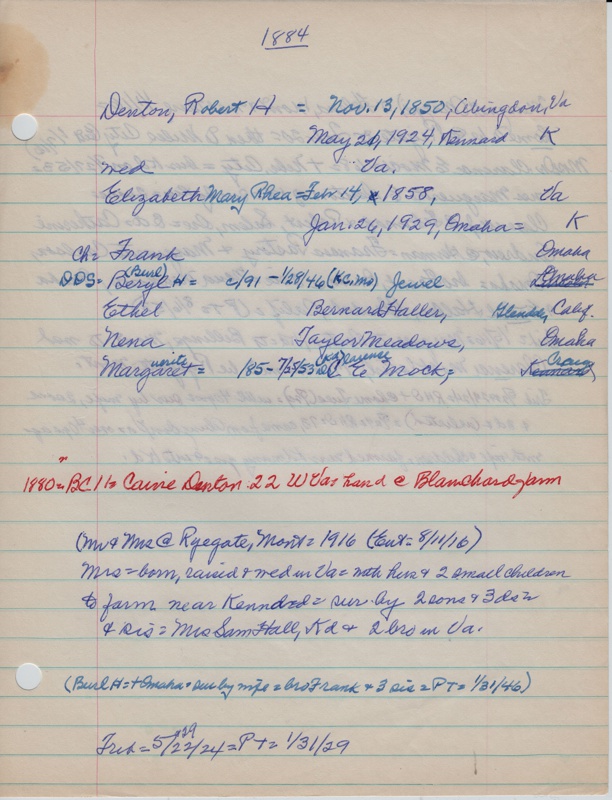 1884
Denton, Robert H = Nov. 13, 1850, Abingdon, Va
May 20, 1924, Kennard K
wed Va.
Elizabeth Mary Rhea = Feb 14, 1858, Va
Jan. 26, 1929, Omaha = K
Ch = Frank Omaha
DDS = Beryl (Burl) H = c/91 - 1/28/46 (KC, Mo) Jewel Omaha
Ethel Bernard Haller, Glendale, Calif.
Nena Taylor Meadows, Omaha
Margaret = 185 - 7/25/53 C E Mock; Kennard Craig
1880 = B.C. 1 = Denton 22 W Va = hand @ Blanchard farm
(Mr & Mrs @ Ryegate, Mont = 1916 (Ent = 8/11/16)
Mrs = born, raised & wed in Va = with hus & 2 small children
to farm near Kennard = sur. by 2 sons & 3 ds =
& sis = Mrs Sam Hall, Kd & 2 bro in Va.
(Burl H = + Omaha = sur by wife = bro Frank & 3 sis = P T = 1/31/46)
= 5/22/24 = P T = 1/31/29